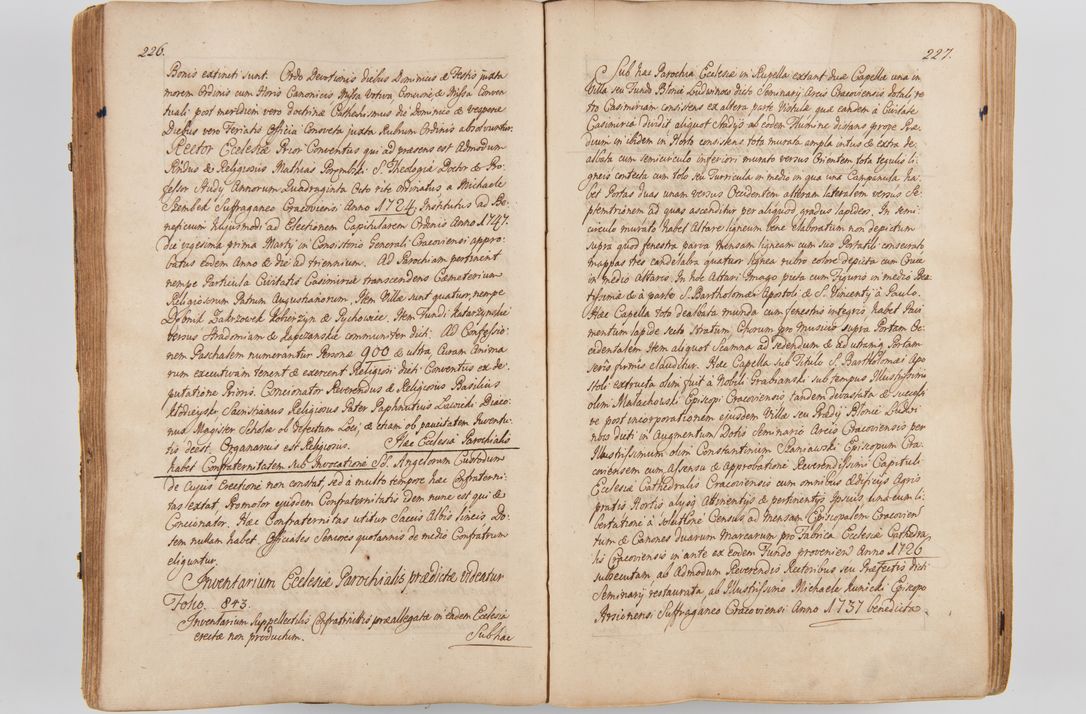 226.
Bonis extincti sunt. Ordo Devotionis diebus Dominicis & Festis juxta
morem Ordinis cum Horis Canonicis Missa Votiva Concione, & Missa Conven
tuali post meridiem vero doctrina Cathechismus die Dominico & vesperæ
Diebus vero Ferialis Officia Consveta juxta Rubrum Ordinis absolvuntur.
Rector Ecclesiæ Prior Conventus qui ad præsens est Admodum
Rndus & Religiosus Mathias Porembski S. Theologiæ Doctor & Pro-
fessor Audy Annorum Quadraginta Octo rite ordinatus a Michaele
Szembek Suffraganeo Cracoviensi Anno 1724. Institutus ad Be-
neficium hujusmodi ad Electionem Capitularem Ordinis Anno 1747.
die vigesima prima Marty in Consistorio Generali Cracoviensi appro-
batus eodem Anno & die ad triennium. Ad Parochiam pertinent
nempe Particula Civitatis Casimiriæ transcendens Cæmeterium
Religiosorum Patrum Augustianorum, Item Villæ sunt quatuor, nempe
Dębnik Zakrzowek Koberzyn & Pychowice. Item Fundi Katarzynskie
versus Stradomiam & Łapczanskie communiter dicti. Ad Confessio-
nem Paschalem numerantur Personæ 900 & ultra, Curam Anima
rum executivam tenent & exercent Religiosi dicti Conventus ex de-
putatione Prioris. Concionator Reverendus & Religiosus Basilius
Religiosus Pater Paphnutius Ławicki Diaco-
nus Magister Scholæ ob Defectum Loci, & etiam ob paucitatem Juventu-
tis deest. Organarius est Religiosus. Hæc Ecclesia Parochialis
habet Confraternitatem sub Invocatione SS. Angelorum Custodum
de Cujus Erectione non constat, sed â multo tempore hæc Confraterni-
tas extat, Promotor ejusdem Confraternitatis idem nunc est qui &
Concionator. Hæc Confraternitas utitur Saccis Albis lineis Do-
tem nullam habet. Officiales Seniores quotannis de medio Confratrum
eliguntur.
Inventarium Ecclesiæ Parochialis prædictæ videatur
Folio 843.
Inventarium suppellectilis Confratnitis præallegatæ in eadem Ecclesia
erectæ non productum.
Sub hac
227.
Sub hac Parochia Ecclesiæ in Rupella extant duæ Capellæ una in
Villa seu Fundo Błonie Ludwinow dicto Seminarij Arcis Cracoviensis dotali re
tro Casimiriam consistens ex altera parte Vistulæ quæ eandem à Civitate
Casimiria dividit aliquot Stadijs ab eodem Flumine distans prope Præ-
dium in ibidem in Horto consistens tota murata ampla intus & extra de-
albata cum semicirculo inferiori murato versus Orientem tota tegulis li-
gneis contecta cum tolo seu Turricula in medio in qua una Campanula ha-
bet Portas duas unam versus Occidentem alteram lateralem versus Se-
ptemtrionem ad quas ascenditur per aliquod gradus lapideos. In semi
circulo murato habet Altare ligneum bene elaboratum non depictum
supra quod fenestra parva Mensam ligneam cum suo Portatili consecrato
mappas tres candelabra quatuor lignea rubro colore depicta cum Cruce
in medio Altaris. In hoc Altari Imago picta cum Figuris in medio Bea
tissimæ & à parte S. Bartholomæi Apostoli & S. Vincenty à Paulo.
Hæc Capella tota dealbata munda cum fenestris integris habet Pavi
mentum lapide secto Stratum, Chorum pro Musicis supra Portam Oc-
cidentalem Item aliquot Scamna ad sedendum & ad utramq Portam
seris firmis clauditur. Hæc Capella sub Titulo S. Bartholomæi Apo
stoli extructa olim fuit à Nobili Grabianski sub tempus Illustrissimi
olim Małachowski Episcopi Cracoviensis tandem devastata & successi
ve post incorporationem ejusdem Villæ seu Prædij Błonie Ludwi
now dicti in Augmentum Dotis Seminarij Arcis Cracoviensis per
Illustrissimum olim Constantinum Szaniawski Episcopum Cra-
coviensem cum Assensu & Approbatione Reverendissimi Capituli
Ecclesiæ Cathedralis Cracoviensis cum omnibus Ædificijs Agris
pratis Hortis alijsq Attinentijs & pertinentijs Ipsius una cum li-
bertatione à solutione Census ad Mensam Episcopalem Cracovien
tum & Canones duarum Marcarum pro Fabrica Ecclesiæ Cathedra
lis Cracoviensis in ante ex eodem Fundo provenien Anno 1726
subsecutam, ab Admodum Reverendis Rectoribus seu Præfectis dicti
Seminarij restaurata, ab Illustrissimo Michaele Kunicki Episcopo
Arsionensi Suffraganeo Cracoviensi Anno 1737 benedicta.